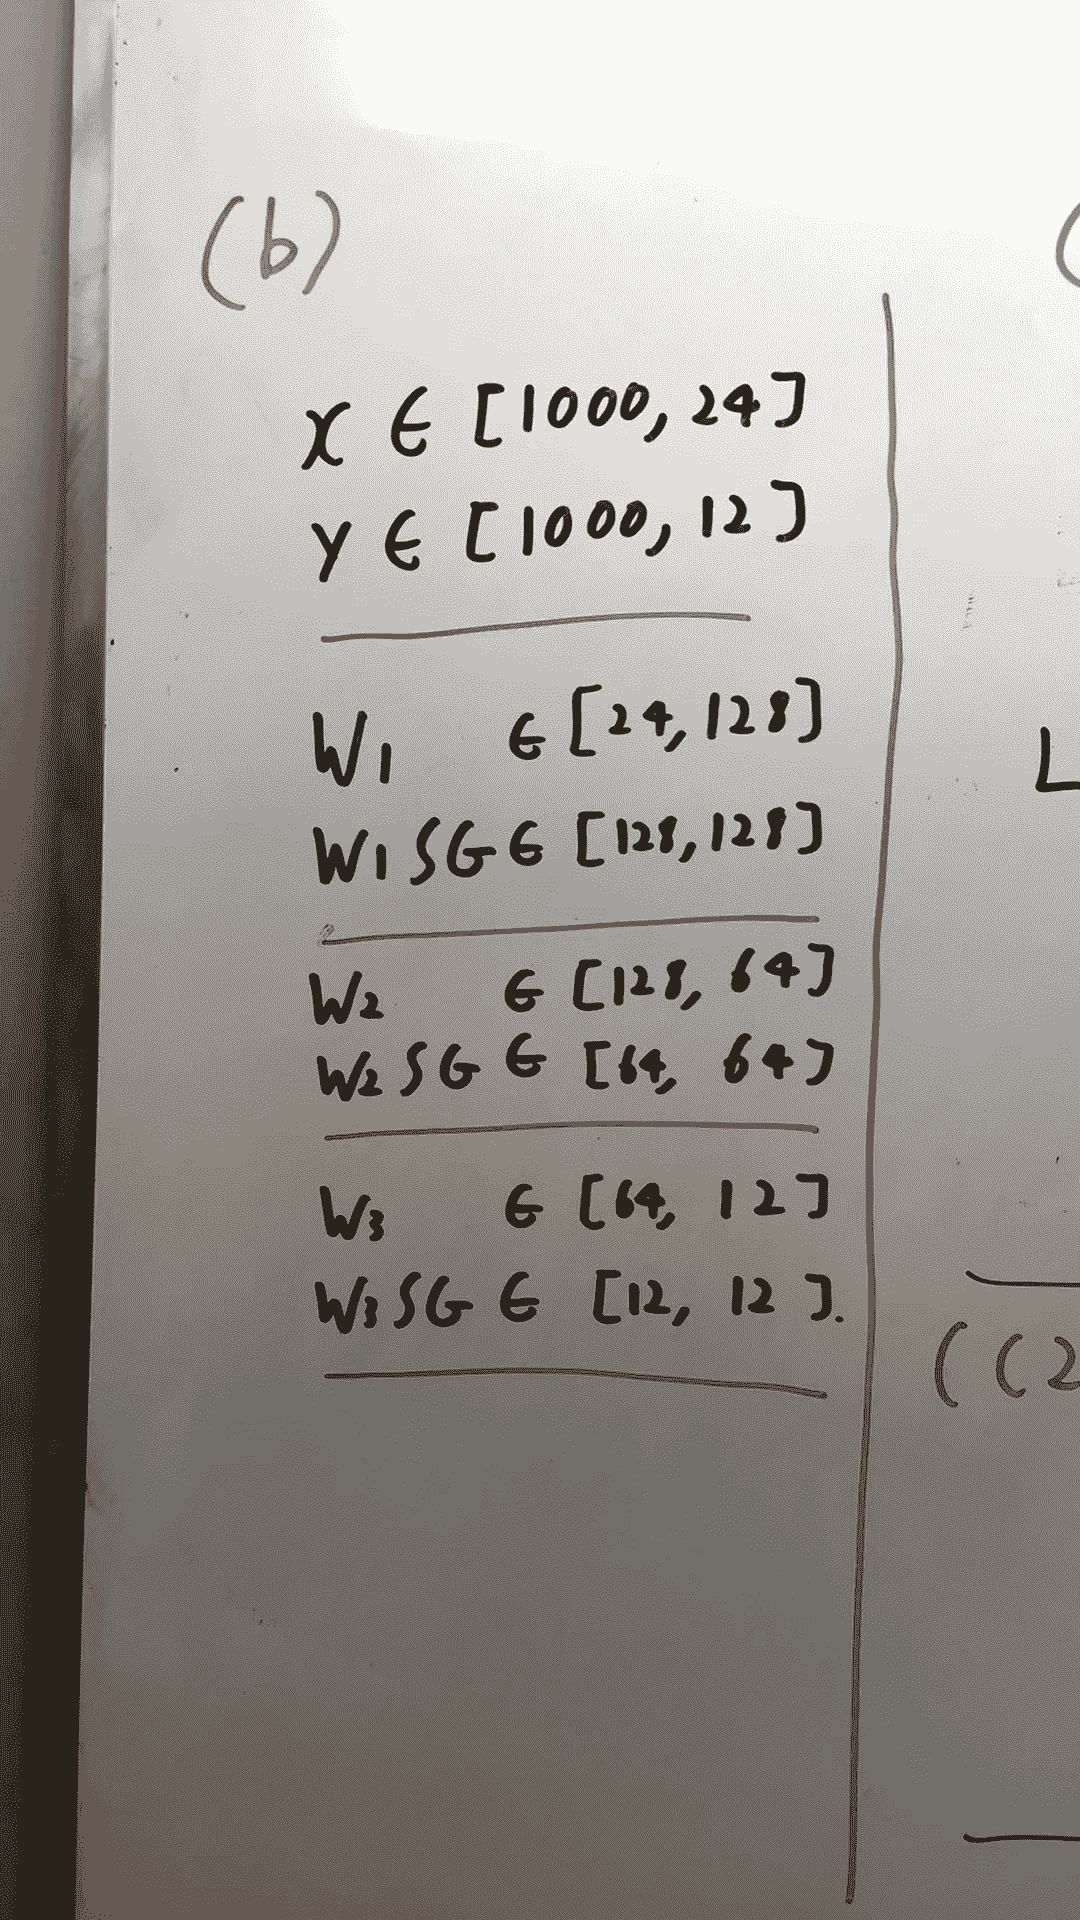 (b)
(
X ∈ [1000, 24]
Y ∈ [1000, 12]
W1 ∈ [24, 128]
L
W1SG ∈ [128, 128]
W2 ∈ [128, 64]
W2SG ∈ [64, 64]
W3 ∈ [64, 12]
W3SG ∈ [12, 12].
((2